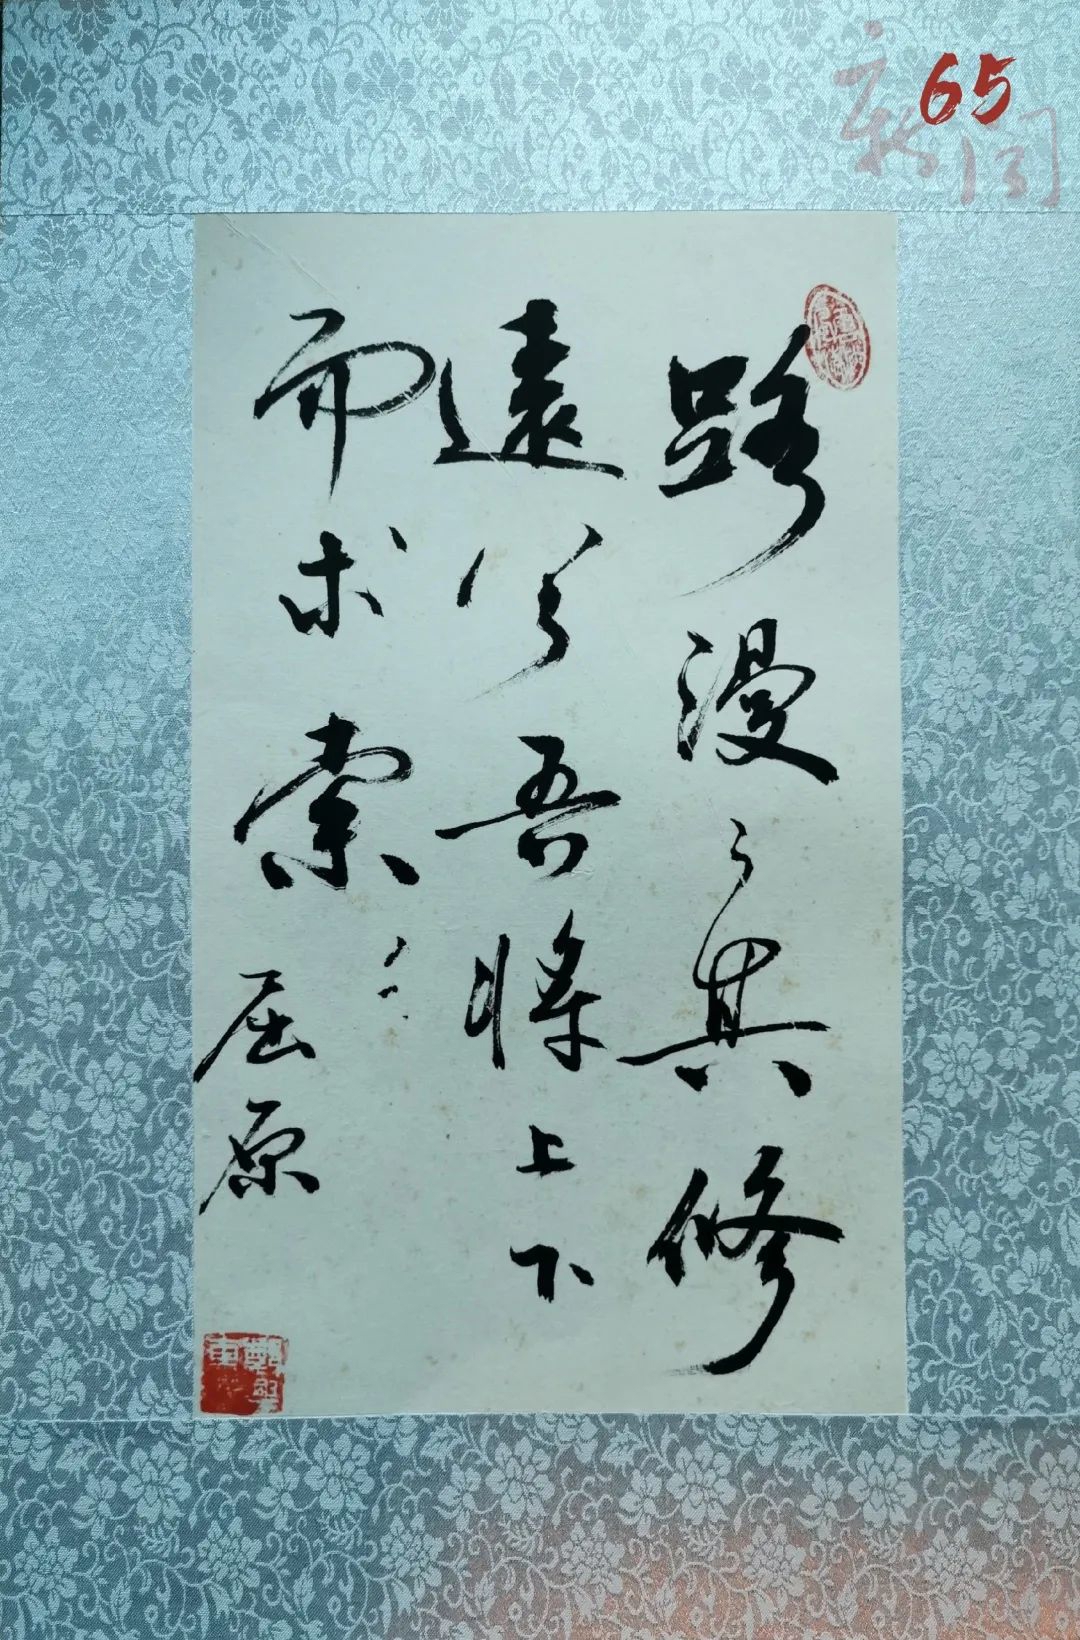 65
新闻
路漫々其修
遠兮吾将上下
而求索
屈原